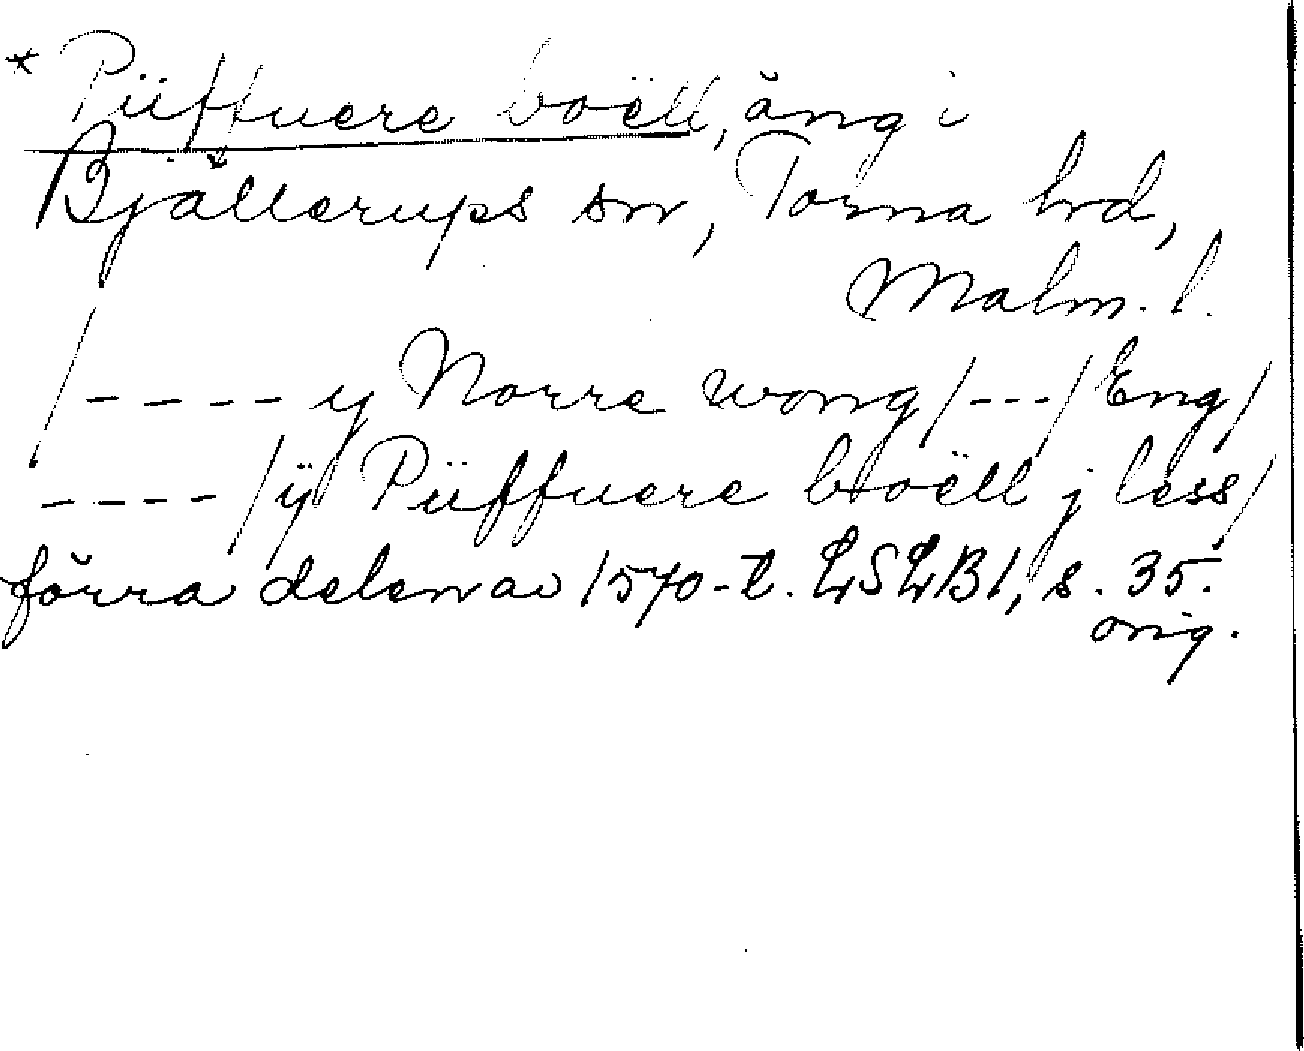 * Püffuere boëll, äng i
Bjällerups sn, Torna hd,
Malm. l.
/---- y Norre wong /---/ Eng/
----/ ÿ Püffuere boëll j less/
förra delen av 1570-t. LSLB1, s. 35.
orig.